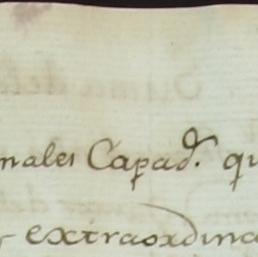 nales Capad.ˢ qu
extraordina